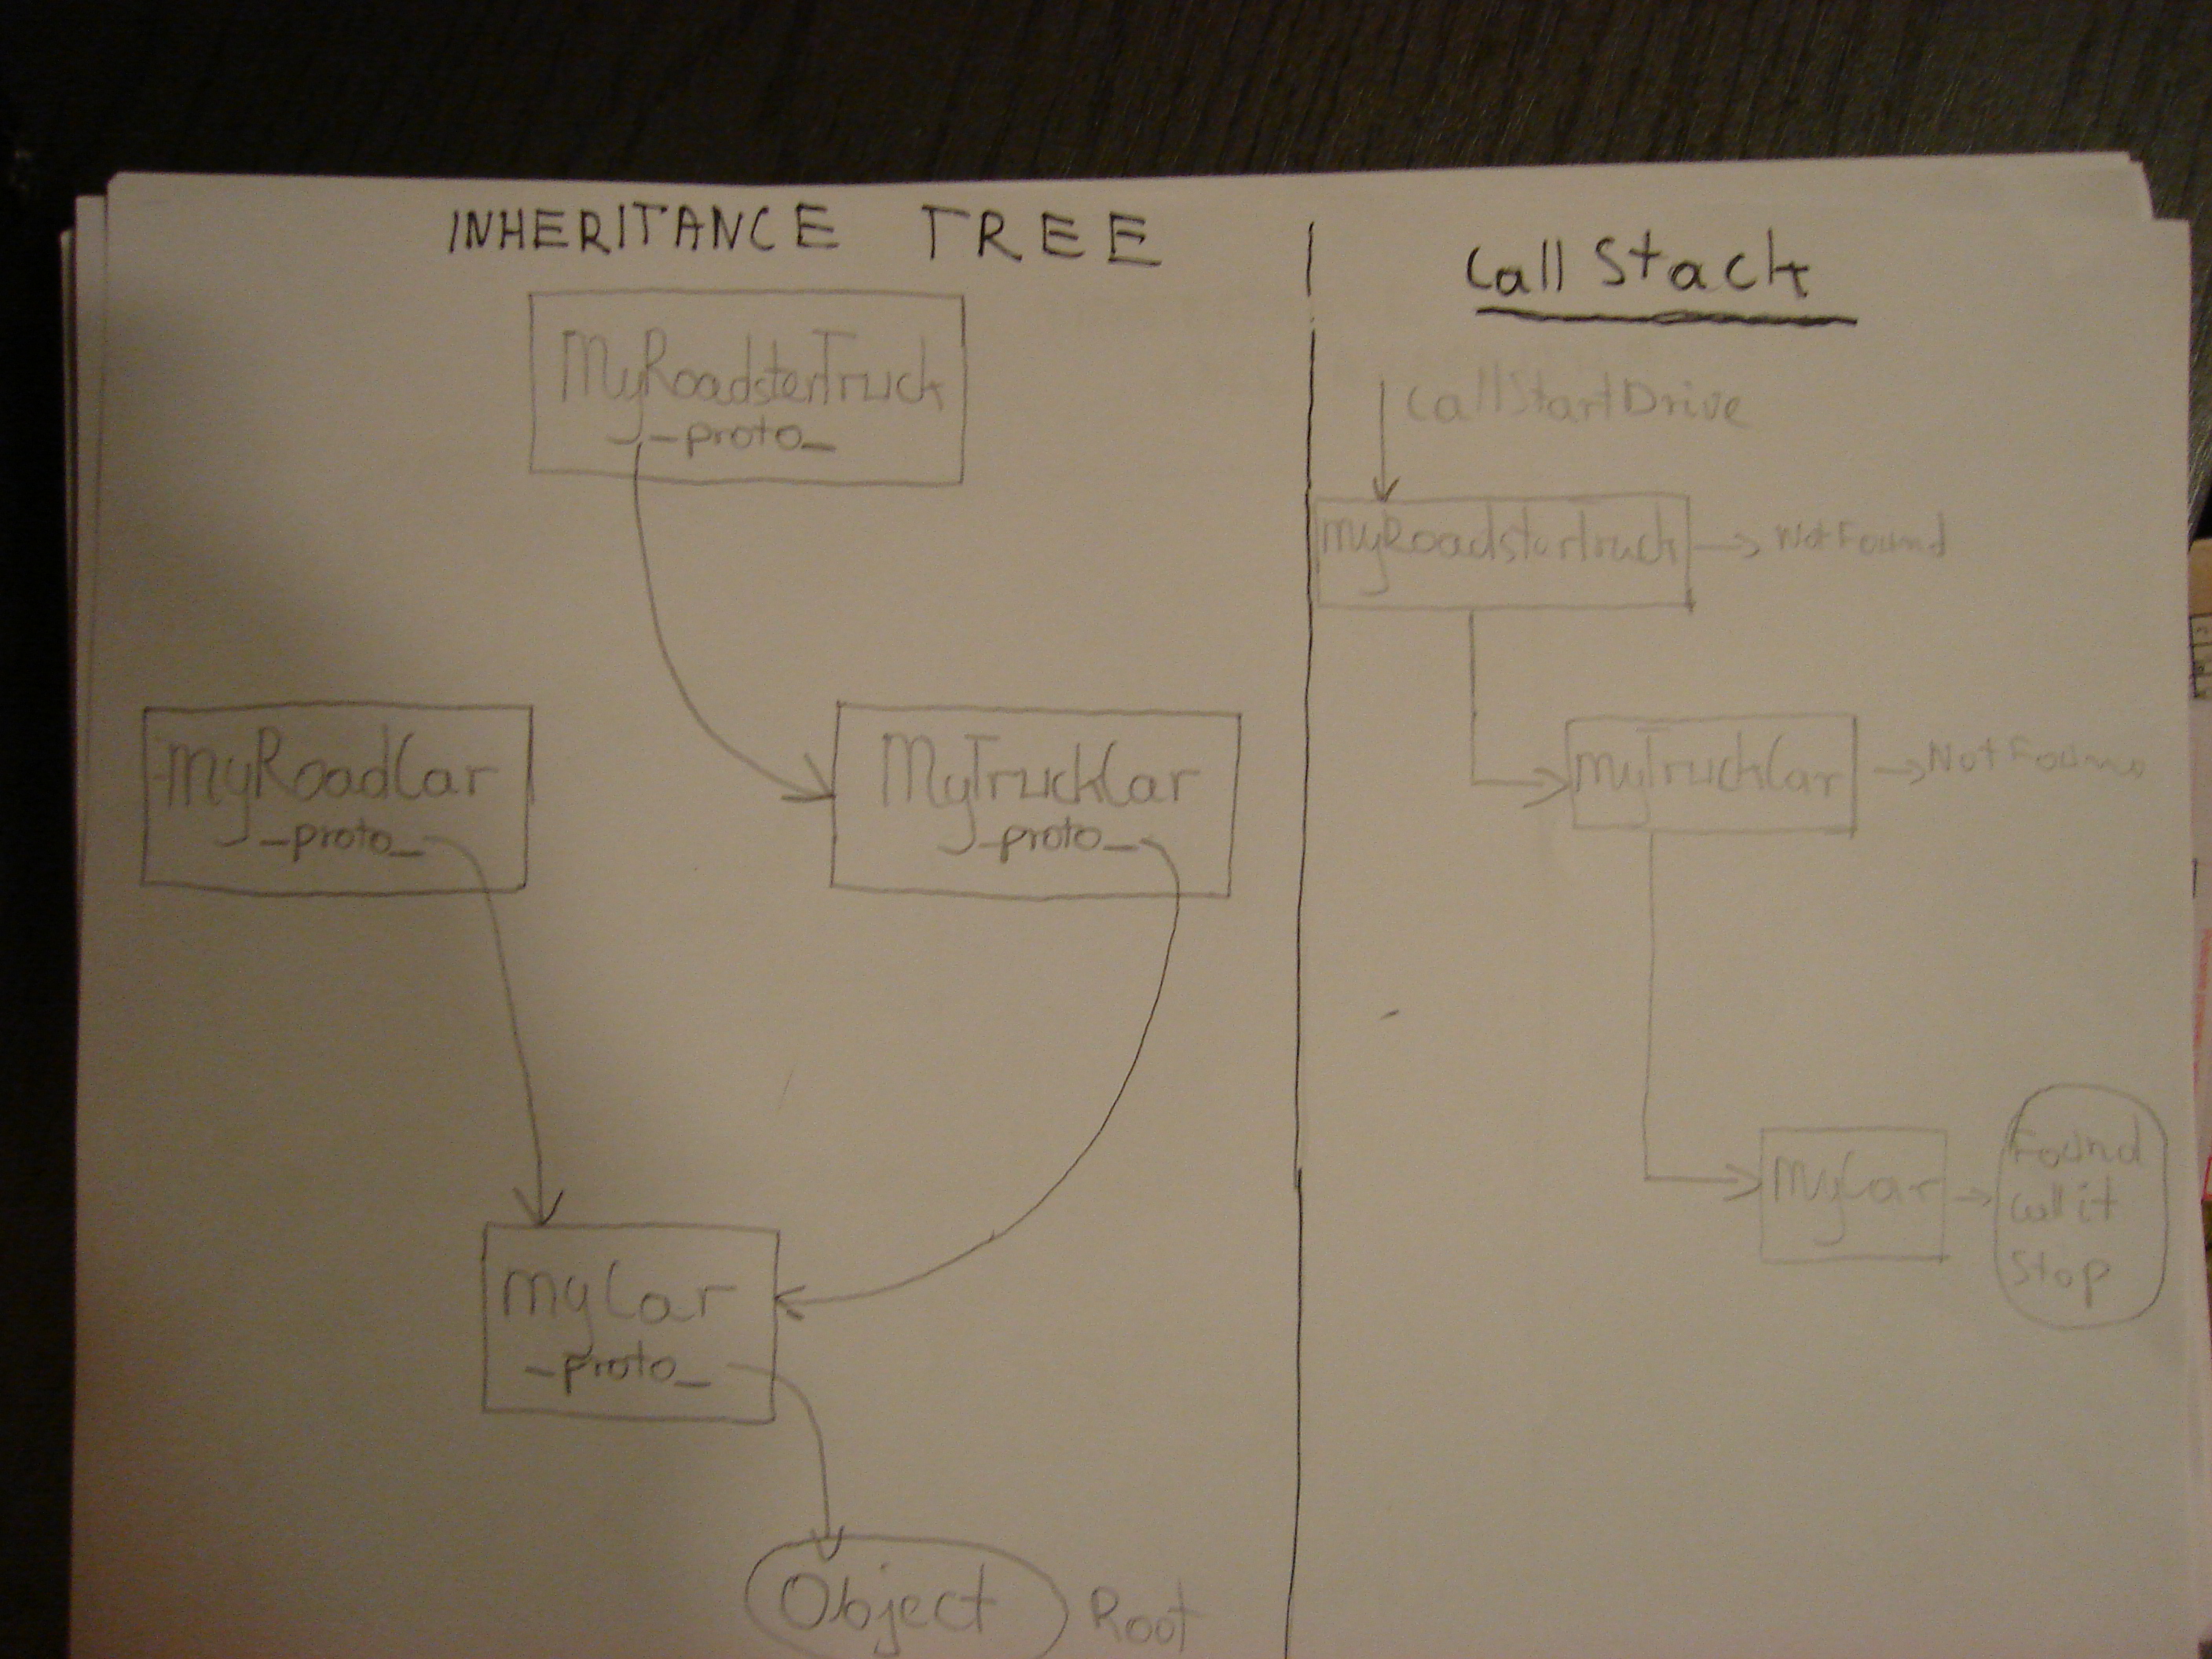 INHERITANCE TREE
MyRoadsterTruck
_proto_
MyRoadCar
_proto_
MyTruckCar
_proto_
MyCar
_proto_
Object
Root
Call Stack
CallStartDrive
MyRoadsterTruck
Not Found
MyTruckCar
Not Found
MyCar
Found
Call it
Stop